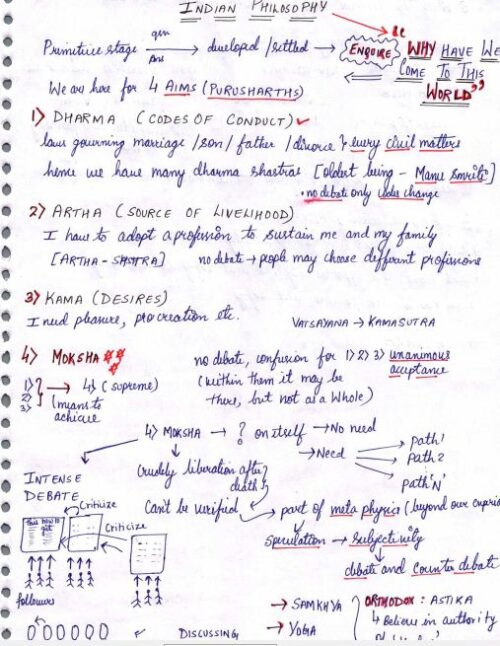 INDIAN PHILOSOPHY
Primitive stage → developed / settled → ENQUIRE "WHY HAVE WE
COME TO THIS
WORLD"
We are here for 4 AIMS (PURUSHARTHS)
1) DHARMA (CODES OF CONDUCT) ✓
laws governing marriage / son / father / divorce } every civil matters
hence we have many dharma shastras [oldest being - Manu smriti]
• no debate only codes change
2) ARTHA (SOURCE OF LIVELIHOOD)
I have to adopt a profession to sustain me and my family
[ARTHA - SHASTRA] no debate → people may choose different professions
3) KAMA (DESIRES)
I need pleasure, procreation etc. VATSAYANA → KAMASUTRA
4) MOKSHA no debate, confusion for 1) 2) 3) unanimous
acceptance
1) 2) 3) → 4) (supreme) (within them it may be
(means to there, but not as a whole)
achieve
4) MOKSHA → ? on itself → No need
→ Need → path 1
Path 2
path 'N'
INTENSE
DEBATE
Crudely liberation after
death
Criticize
Criticize
Can't be verified → part of meta physics (beyond our
speculation → subjectively
debate and counter debate
followers
DISCUSSING
→ SAMKHYA
→ YOGA
ORTHODOX : ASTIKA
↳ Believe in authority